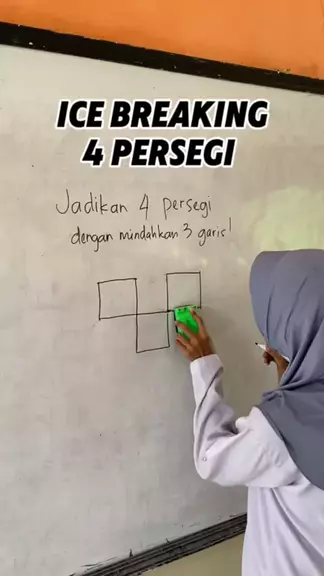 ICE BREAKING
4 PERSEGI
Jadikan 4 persegi
dengan mindahkan 3 garis!